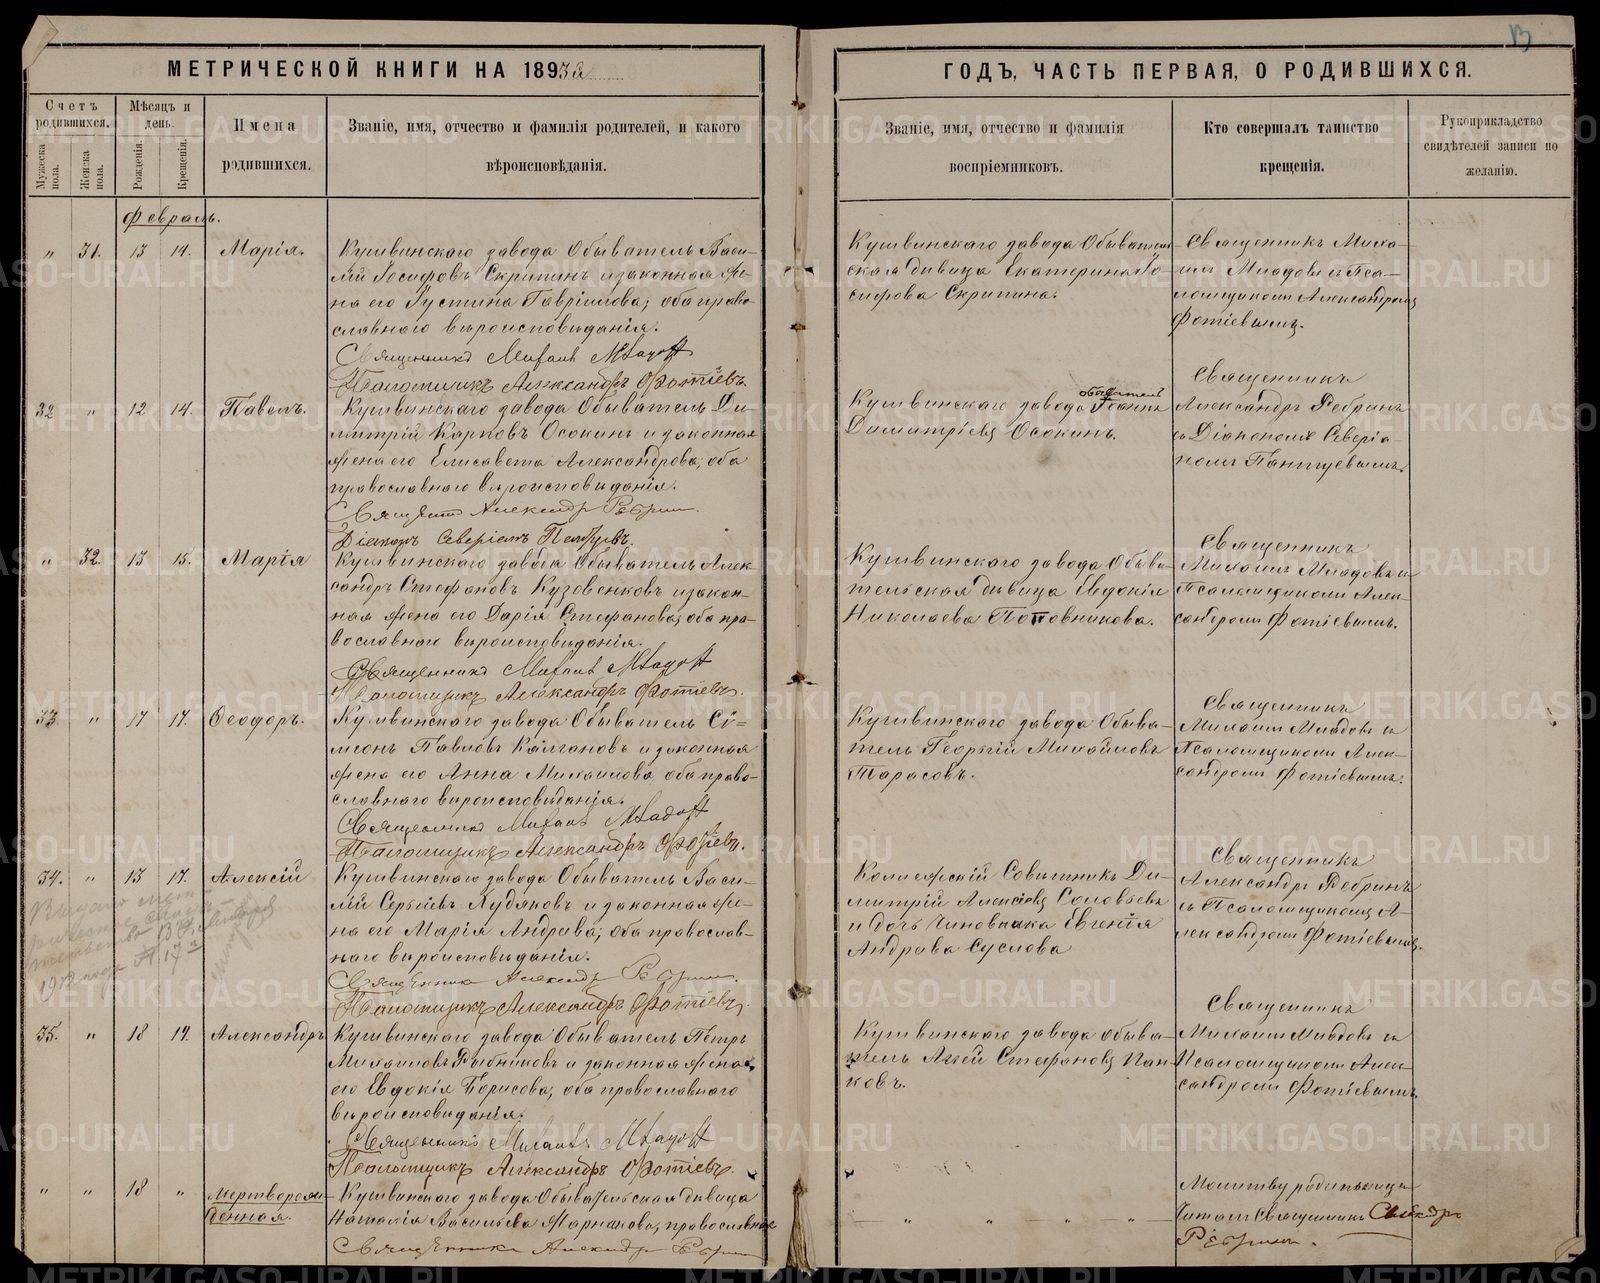 13
МЕТРИЧЕСКОЙ КНИГИ НА 1893й
ГОДЪ, ЧАСТЬ ПЕРВАЯ, О РОДИВШИХСЯ.
Счетъ родившихся.
Мужеска пола.
Женска пола.
Мѣсяцъ и день.
Рожденія.
Крещенія.
Имена
родившихся.
Званіе, имя, отчество и фамилія родителей, и какого
вѣроисповѣданія.
Званіе, имя, отчество и фамилія
воспріемниковъ.
Кто совершалъ таинство
крещенія.
Рукоприкладство
свидѣтелей записи по
желанію.
Февраль.
" 31. 13 14. Марія.
Кушвинскаго завода Обыватель Васи-
лій Іосифовъ Скрипинъ и законная же-
на его Іустина Гавріилова; оба право-
славнаго вѣроисповѣданія.
Священникъ Михаилъ Младовъ
Псаломщикъ Александръ Фотіевъ.
Кушвинскаго завода Обыватель-
ская дѣвица Екатерина Іо-
сифова Скрипина.
Священникъ Миха-
илъ Младовъ съ Пса-
ломщикомъ Александромъ
Фотіевымъ.
32 " 12 14. Павелъ.
Кушвинскаго завода Обыватель Ди-
митрій Карповъ Осокинъ и законная
жена его Елисавета Александрова; оба
православнаго вѣроисповѣданія.
Священникъ Александръ Ребринъ.
Діаконъ Северіанъ
Кушвинскаго завода обыватель Іоаннъ
Димитріевъ Осокинъ.
Священникъ
Александръ Ребринъ
съ Діакономъ Северіа-
номъ
" 32. 13 15. Марія
Кушвинскаго завода Обыватель Алек-
сандръ Стефановъ Кузовенковъ и закон-
ная жена его Дарія Стефанова; оба пра-
вославнаго вѣроисповѣданія.
Священникъ Михаилъ Младовъ
Псаломщикъ Александръ Фотіевъ.
Кушвинскаго завода Обыва-
тельская дѣвица Евдокія
Николаева
Священникъ
Михаилъ Младовъ съ
Псаломщикомъ Алек-
сандромъ Фотіевымъ.
33 " 17 17. Ѳеодоръ.
Кушвинскаго завода Обыватель Сѵ-
меонъ Павловъ Калгановъ и законная
жена его Анна Михаилова, оба право-
славнаго вѣроисповѣданія.
Священникъ Михаилъ Младовъ
Псаломщикъ Александръ Фотіевъ.
Кушвинскаго завода Обыва-
тель Георгій Михаиловъ
Тарасовъ.
Священникъ
Михаилъ Младовъ съ
Псаломщикомъ Алек-
сандромъ Фотіевымъ.
34. " 13 17. Алексій
Кушвинскаго завода Обыватель Васи-
лій Сергіевъ Худяковъ и законная же-
на его Марія Андреева; оба православ-
наго вѣроисповѣданія.
Священникъ Александръ Ребринъ.
Псаломщикъ Александръ Фотіевъ.
Коллежскій Совѣтникъ Ди-
митрій Алексіевъ Соловьевъ
и дочь Чиновника Евгенія
Андреева Суслова
Священникъ
Александръ Ребринъ
съ Псаломщикомъ А-
лександромъ Фотіевымъ.
35. " 18 19. Александръ
Кушвинскаго завода Обыватель Петръ
Михаиловъ Рыбниковъ и законная жена
его Евдокія Борисова, оба православнаго
вѣроисповѣданія.
Священникъ Михаилъ Младовъ
Псаломщикъ Александръ Фотіевъ.
Кушвинскаго завода обыва-
тель Стефановъ Пан-
ковъ.
Священникъ
Михаилъ Младовъ съ
Псаломщикомъ Алек-
сандромъ Фотіевымъ.
" " 18 " Мертворож-
денная.
Кушвинскаго завода Обывательская дѣвица
Наталія Васильева православная
Священникъ Александръ Ребринъ
" " " "
Молитву родильницѣ
читалъ Священникъ Александръ
Ребринъ.
METRIKI.GASO-URAL.RU